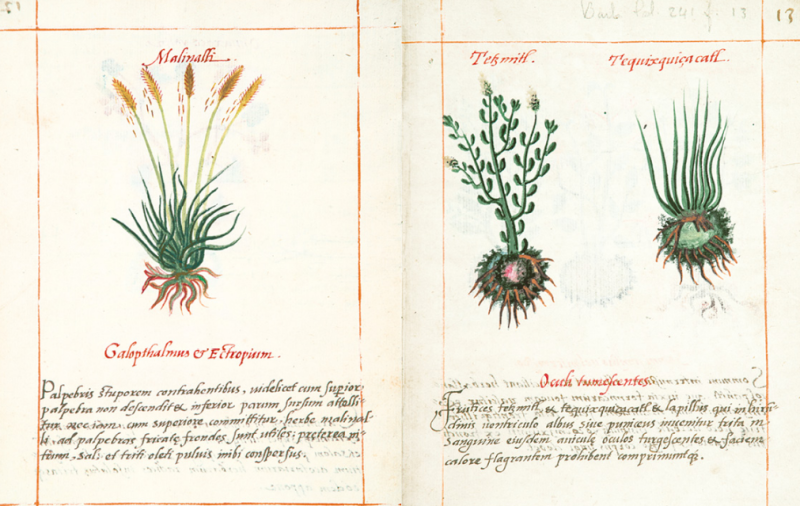 Malinalli.
Galopthalmus & Ectropium.
Palpebris stuporem contrahentibus, uidelicet cum superior
palpebra non descendit & inferior parum sursum attolli-
tur, nec iam cum superiore committitur. herbe malinal-
li, ad palpebras fricate frondes sunt utiles: preterea ni-
trum, sal: et triti oleti puluis inibi conspersus.
13
Tetzmitl.
Tequixquiçacatl.
Oculi tumescentes.
Frutices tetzmitl, & tequixquiçacatl & lapillus qui in hirun-
dinis uentriculo albus siue puniceus inuenitur trita in
sanguine eiusdem auiculę oculos turgescentes & faciem
calore flagrantem prohibent comprimuntq;.